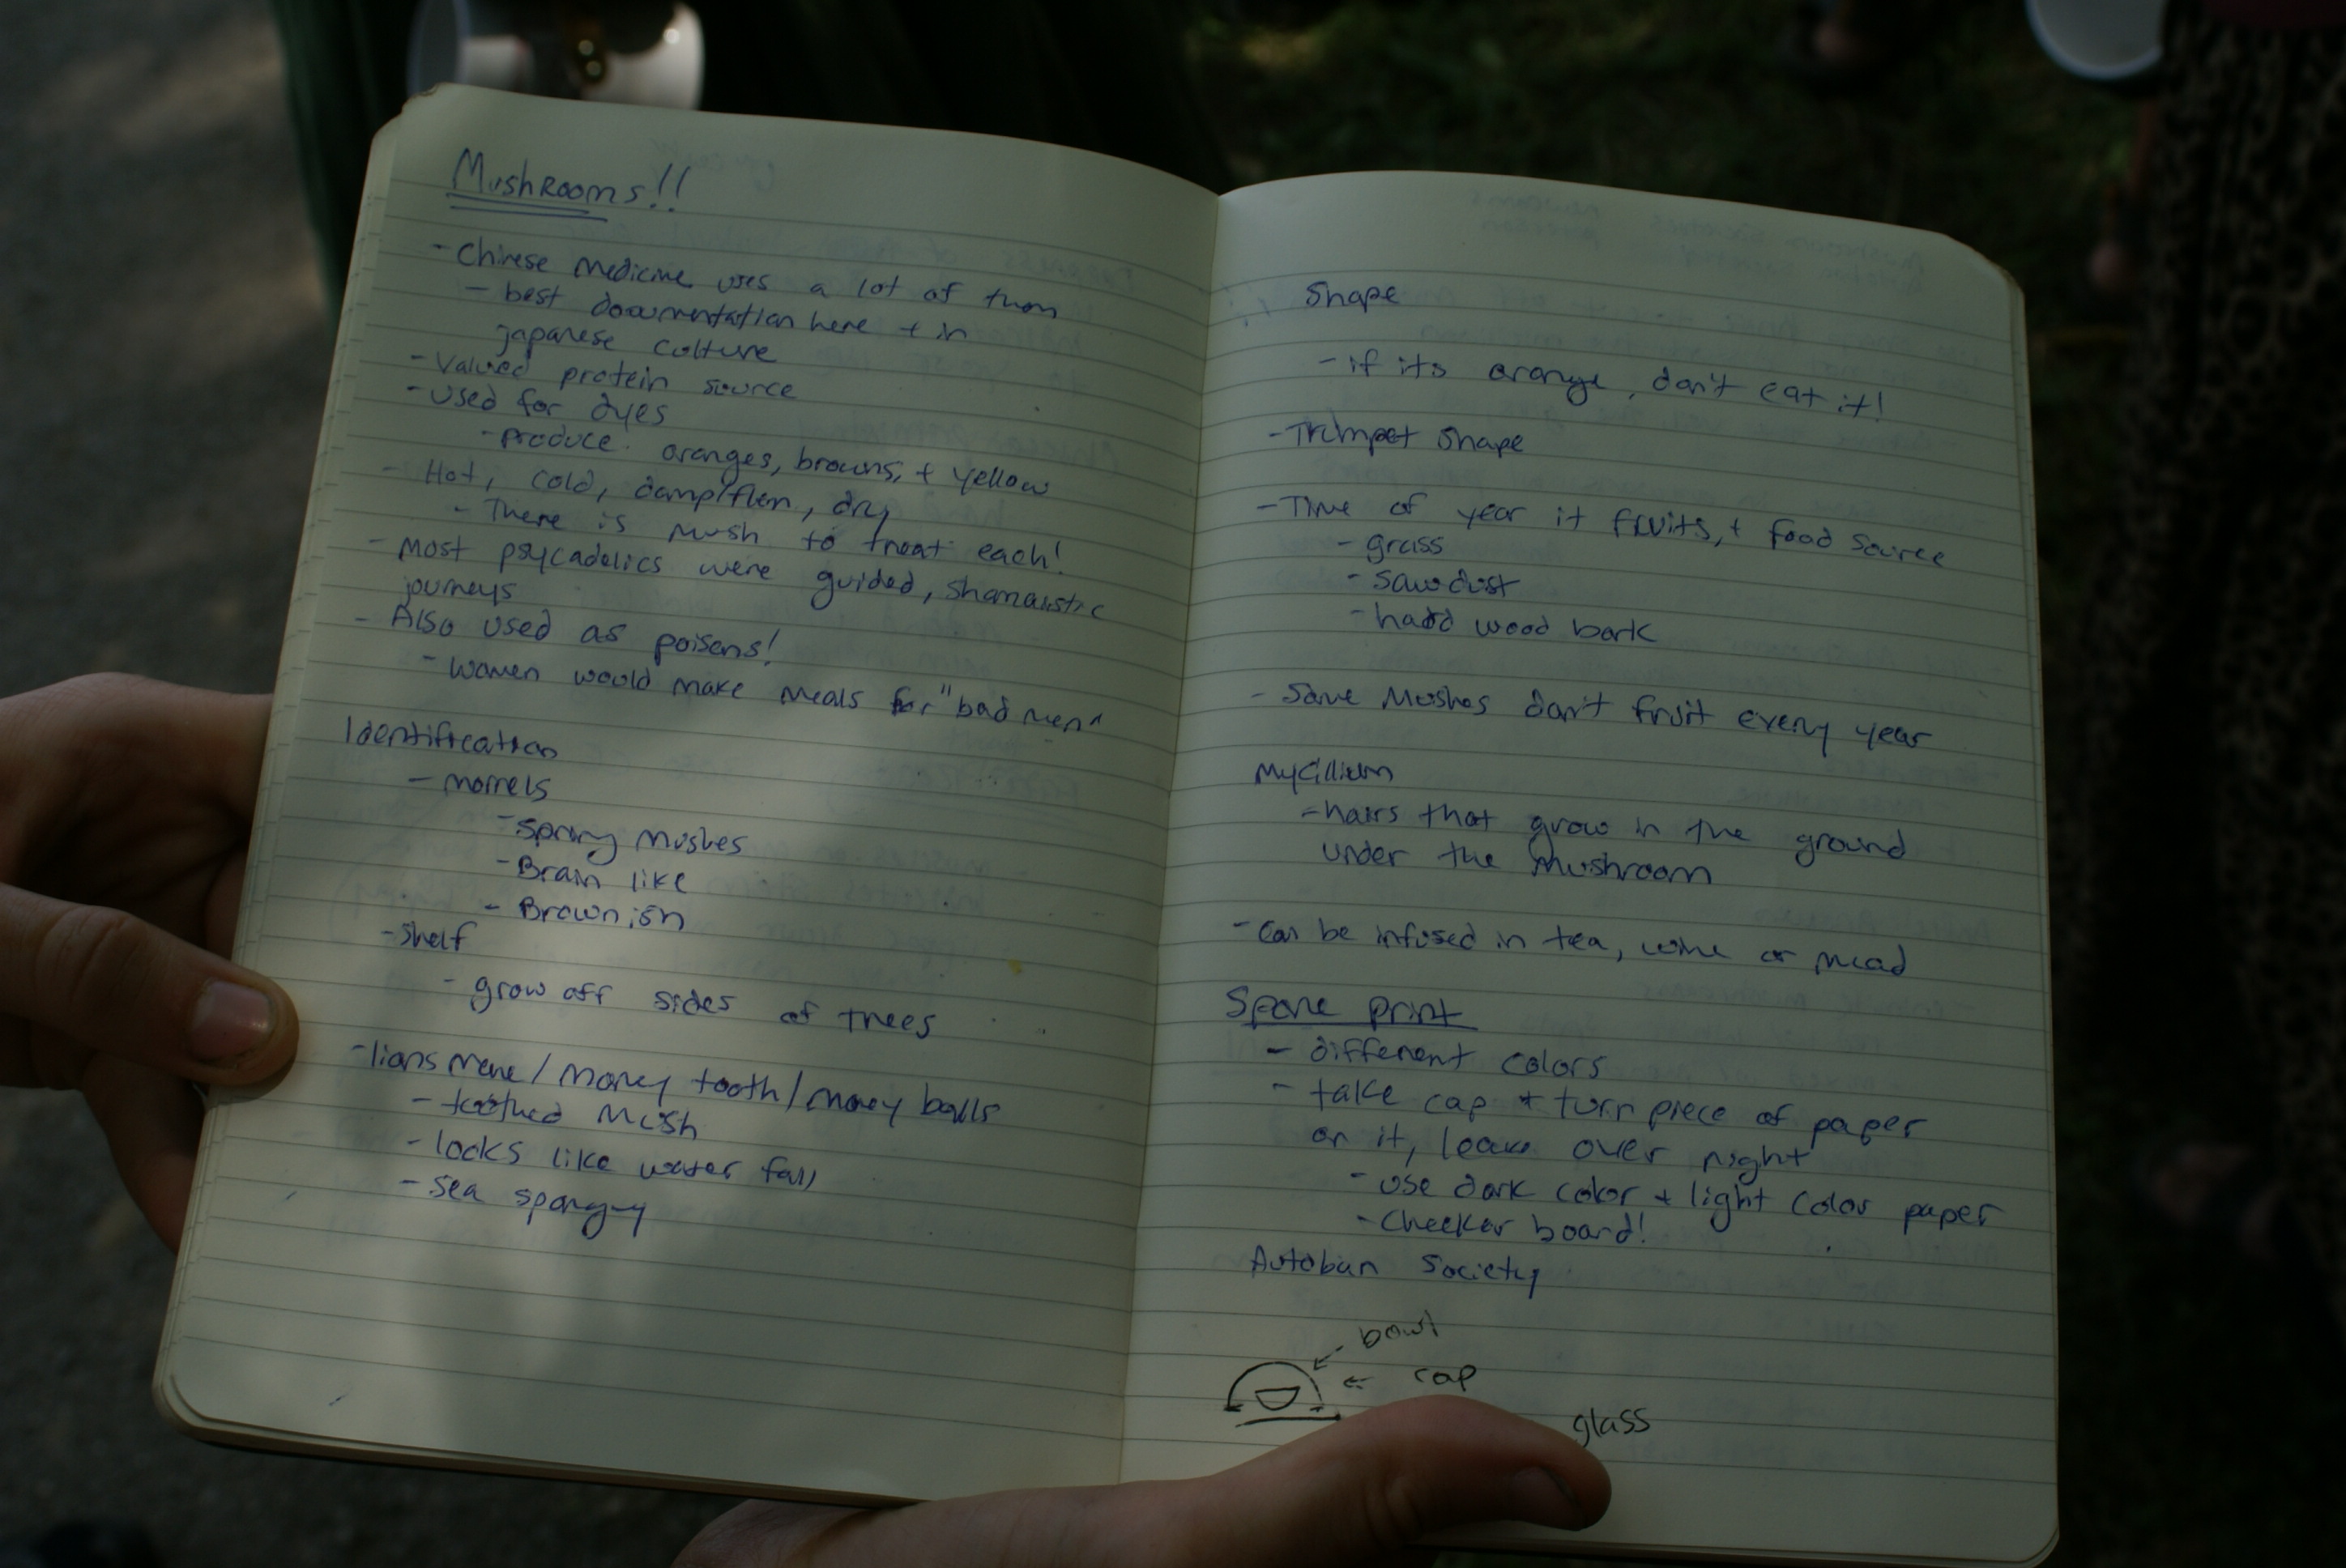 Mushrooms!!
- Chinese medicine uses a lot of them
- best documentation here + in
japanese culture
- Valued protein source
- used for dyes
- produce oranges, browns, + yellow
- Hot, cold, damp/flem, dry
- There is mush to treat each!
- most psycadelics were guided, shamanistic
journeys
- Also used as poisens!
- women would make meals for "bad men"
Identification
- morrels
- spring mushes
- Brain like
- Brownish
- shelf
- grow off sides of trees
- lions mane / money tooth / money balls
- toothed mush
- looks like water fall
- sea spongey
Shape
- if its orange, don't eat it!
- Trumpet shape
- Time of year it fruits, + food source
- grass
- sawdust
- hard wood bark
- Some mushes don't fruit every year
Mycillium
- hairs that grow in the ground
under the mushroom
- Can be infused in tea, wine or mead
Spore print
- different colors
- take cap + turn piece of paper
on it, leave over night
- use dark color + light color paper
- checker board!
Autoban Society
bowl
cap
glass